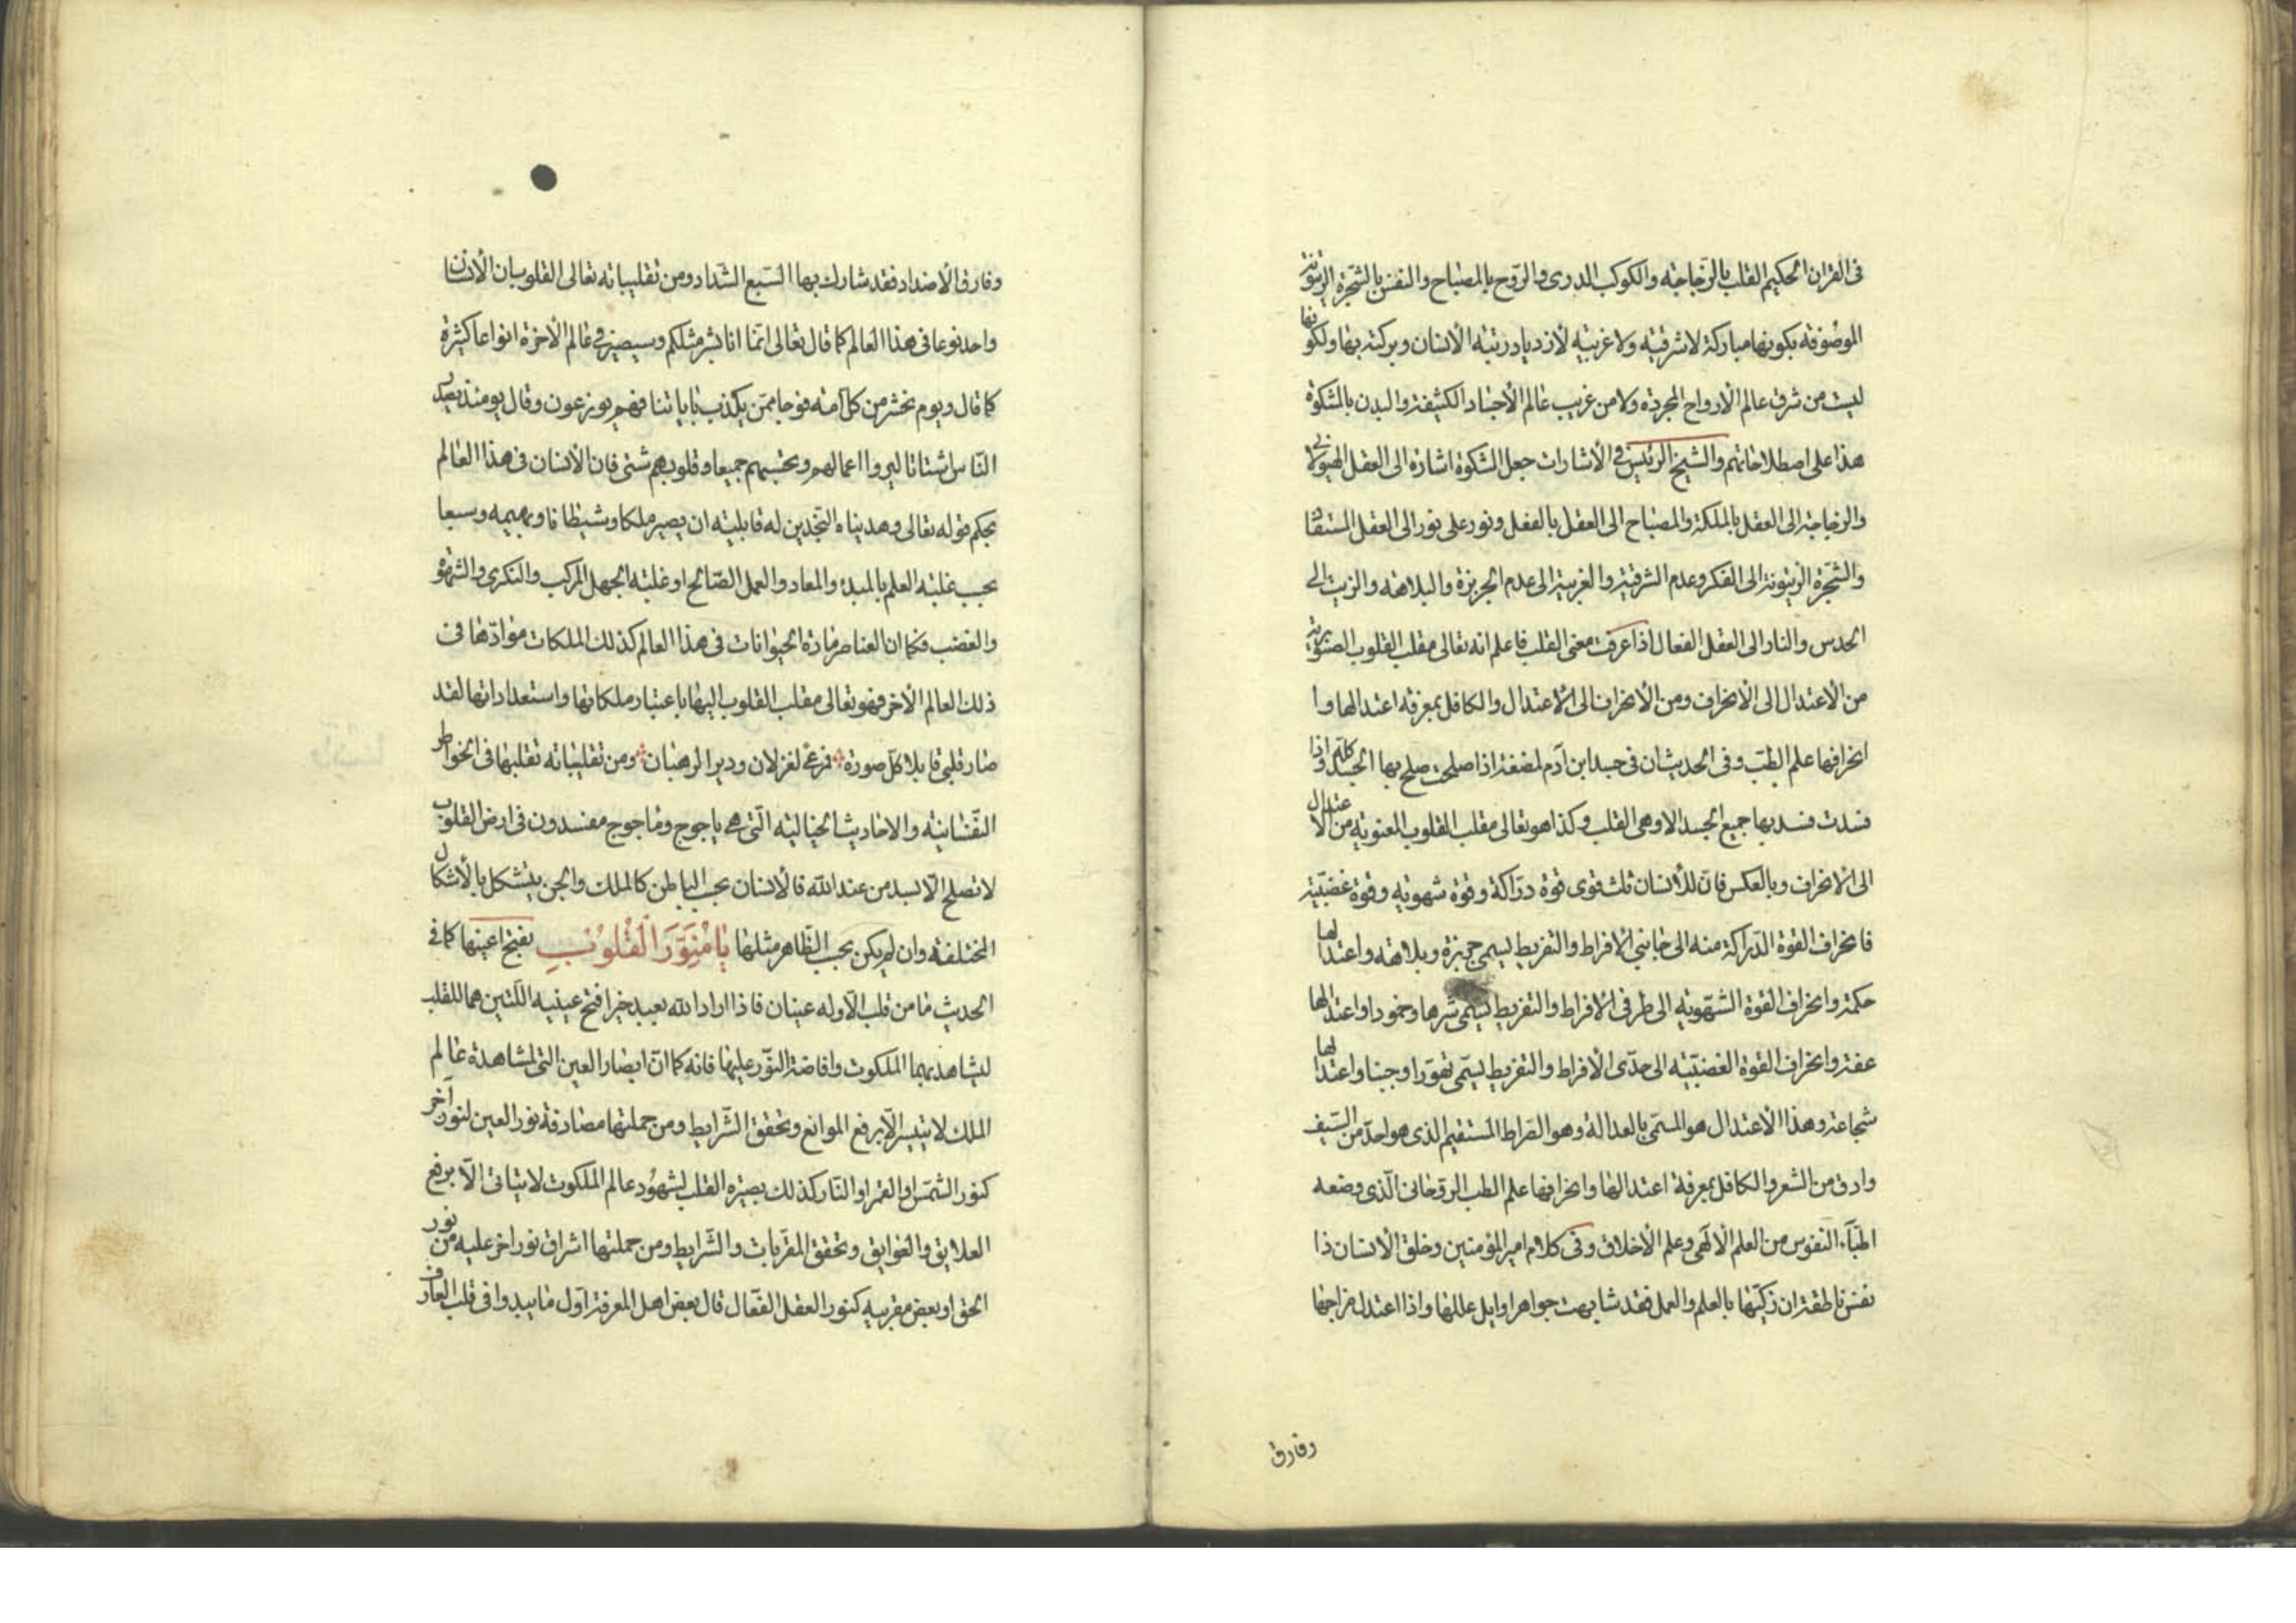 فى القران الحكيم القلب بالزجاجة والكوكب الدرى والروح بالمصباح والنفس بالشجرة الزيتونة
الموصوفة بكونها مباركة لا شرقية ولا غربية لازدياد رتبة الانسان وبركته بها ولكونها
ليست من شرق عالم الارواح المجردة ولا من غرب عالم الاجساد الكثيفة والبدن بالمشكوة
هذا على اصطلاحاتهم والشيخ الرئيس فى الاشارات جعل المشكوة اشارة الى العقل الهيولانى
والزجاجة الى العقل بالملكة والمصباح الى العقل بالفعل ونور على نور الى العقل المستفاد
والشجرة الزيتونة الى الفكر وعدم الشرقية والغربية الى عدم الجربزة والبلاهة والزيت الى
الحدس والنار الى العقل الفعال اذا عرفت معنى القلب فاعلم انه تعالى مقلب القلوب الصنوبرية
من الاعتدال الى الانحراف ومن الانحراف الى الاعتدال والكافل بمعرفة اعتدالها وا
انحرافها علم الطب وفى الحديث ان فى جسد ابن آدم لمضغة اذا صلحت صلح بها الجسد كله واذا
فسدت فسد بها جميع الجسد الا وهى القلب وكذا هو تعالى مقلب القلوب المعنوية من الاعتدال
الى الانحراف وبالعكس فان للانسان ثلث قوى قوة دراكة وقوة شهوية وقوة غضبية
فانحراف القوة الدراكة منه الى جانبى الافراط والتفريط يسمى جربزة وبلاهة واعتدالها
حكمة وانحراف القوة الشهوية الى طرفى الافراط والتفريط يسمى شرها وخمودا واعتدالها
عفة وانحراف القوة الغضبية الى حدى الافراط والتفريط يسمى تهورا وجبنا واعتدالها
شجاعة وهذا الاعتدال هو المسمى بالعدالة وهو الصراط المستقيم الذى هو احد من السيف
وادق من الشعر والكافل بمعرفة اعتدالها وانحرافها علم الطب الروحانى الذى وضعه
اطباء النفوس من العلم الالهى وعلم الاخلاق وفى كلام امير المؤمنين وخلق الانسان ذا
نفس ناطقة ان زكيها بالعلم والعمل فقد شابهت جواهر اوايل عللها واذا اعتدل مزاجها
وفارق
وفارق الاضداد فقد شارك بها السبع الشداد ومن تقليباته تعالى القلوب ان الانسان
واحد نوعا فى هذا العالم كما قال تعالى انما انا بشر مثلكم وسيصير فى عالم الاخرة انواعا كثيرة
كما قال ويوم نحشر من كل امة فوجا ممن يكذب باياتنا فهم يوزعون وقال يومئذ يصدر
الناس اشتاتا ليروا اعمالهم وتحسبهم جميعا وقلوبهم شتى فان الانسان فى هذا العالم
بحكم قوله تعالى وهديناه النجدين له قابلية ان يصير ملكا وشيطانا وبهيمة وسبعا
بحسب غلبة العلم بالمبدء والمعاد والعمل الصالح او غلبة الجهل المركب والنكرى والشهوة
والغضب فكما ان العناصر مادة الحيوانات فى هذا العالم كذلك الملكات موادها فى
ذلك العالم الاخر فهو تعالى مقلب القلوب اليها باعتبار ملكاتها واستعداداتها لقد
صار قلبى قابلا كل صورة فمرعى لغزلان ودير الرهبان ومن تقليباته تقلبها فى الخواطر
النفسانية والاحاديث الخيالية التى هى ياجوج وماجوج مفسدون فى ارض القلوب
لا تصلح الا بسد من عند الله فالانسان بحسب الباطن كالملك والجن يتشكل بالاشكال
المختلفة وان لم يكن بحسب الظاهر مثلها يَا مُنَوِّرَ الْقُلُوبِ بفتح اعينها كما فى
الحديث ما من قلب الا وله عينان فاذا اراد الله بعبد خيرا فتح عينيه اللتين هما للقلب
ليشاهد بهما الملكوت وافاضة النور عليها فانه كما ان ابصار العين التى لمشاهدة عالم
الملك لا يتيسر الا برفع الموانع وتحقق الشرايط ومن جملتها مصادفة نور العين لنور آخر
كنور الشمس او القمر او النار كذلك بصيرة القلب لشهود عالم الملكوت لا يتاتى الا برفع
العلايق والعوايق وتحقق المقربات والشرايط ومن جملتها اشراق نور اخر عليه من نور
الحق او بعض مقربيه كنور العقل الفعال قال بعض اهل المعرفة اول ما يبدوا فى قلب العارف